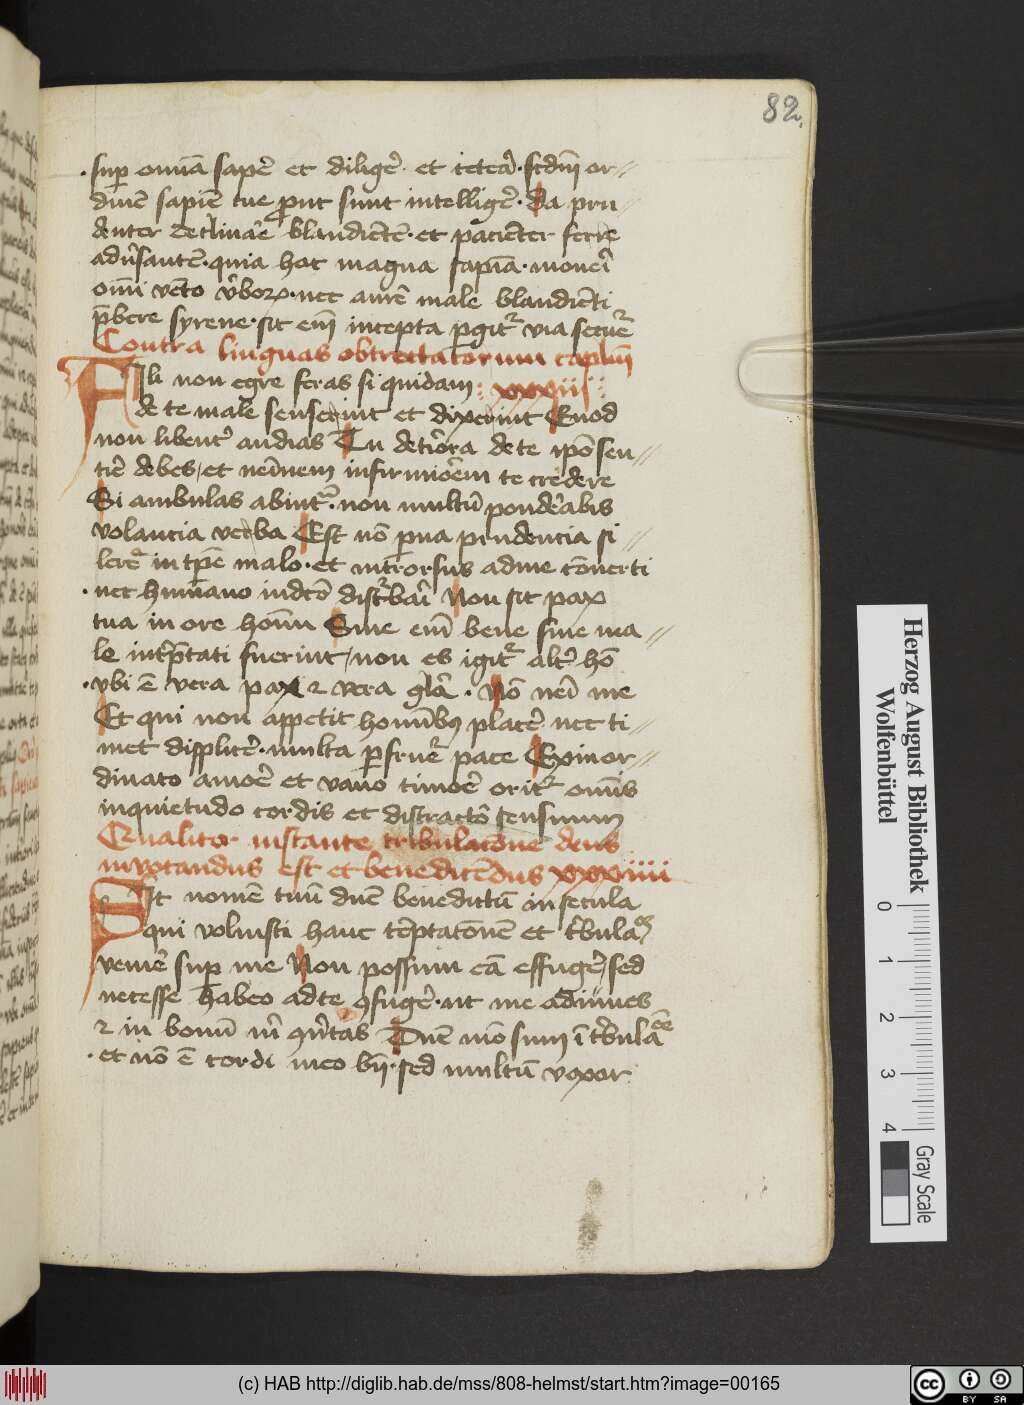 82
sup om̄ia sapē et diligē et cetera scdm̄ or
dinē sapiē tue prout sunt intelligē Da pru
denter declinare blandientē et pacienter ferre
adūsantē quia hec magna sapīa moueri
omī vento ūborꝝ nec aurē male blandienti
p̄bere syrene sic em̄ incepta pergitur via secure
Contra linguas obtrectatorum caplm̄
Fili non egre feras si quidam xxxiii
de te male senserint et dixerint Quod
non libenter audias Tu deteriora de te ip̄o sen
tire debes et neminem infirmiorem te credere
Si ambulas ab intus non multū ponderabis
volancia verba Est nō parua prudencia si
lere in tp̄e malo et introrsus ad me cōuerti
nec humano iudicō disturbari Non sit pax
tua in ore hom̄m Siue em̄ bene siue ma
le interp̄tati fuerint non es igitur alter hō
vbi ē vera pax et vera glōa Nō nei me
Et qui non appetit hominibus placere nec ti
met displicere multa perfruetur pace Ex inor
dinato amore et vano timore oritur omnis
inquietudo cordis et distractō sensuum
Qualiter instante tribulacōne deus
inuocandus est et benedicēdus xxxiiii
Sit nomē tuū dn̄e benedictū in secula
qui voluisti hanc tēptacōnē et tribulacōem
venire sup me Non possum eā effugere sed
necesse habeo ad te ꝯfugere ut me adiuues
et in bonū m̄ ꝯūtas Dn̄e mō sum ī tribulacōe
et nō ē cordi meo bn̄ sed multū vexor
Herzog August Bibliothek
Wolfenbüttel
0
1
2
3
4
Gray Scale
(c) HAB http://diglib.hab.de/mss/808-helmst/start.htm?image=00165
cc
BY SA